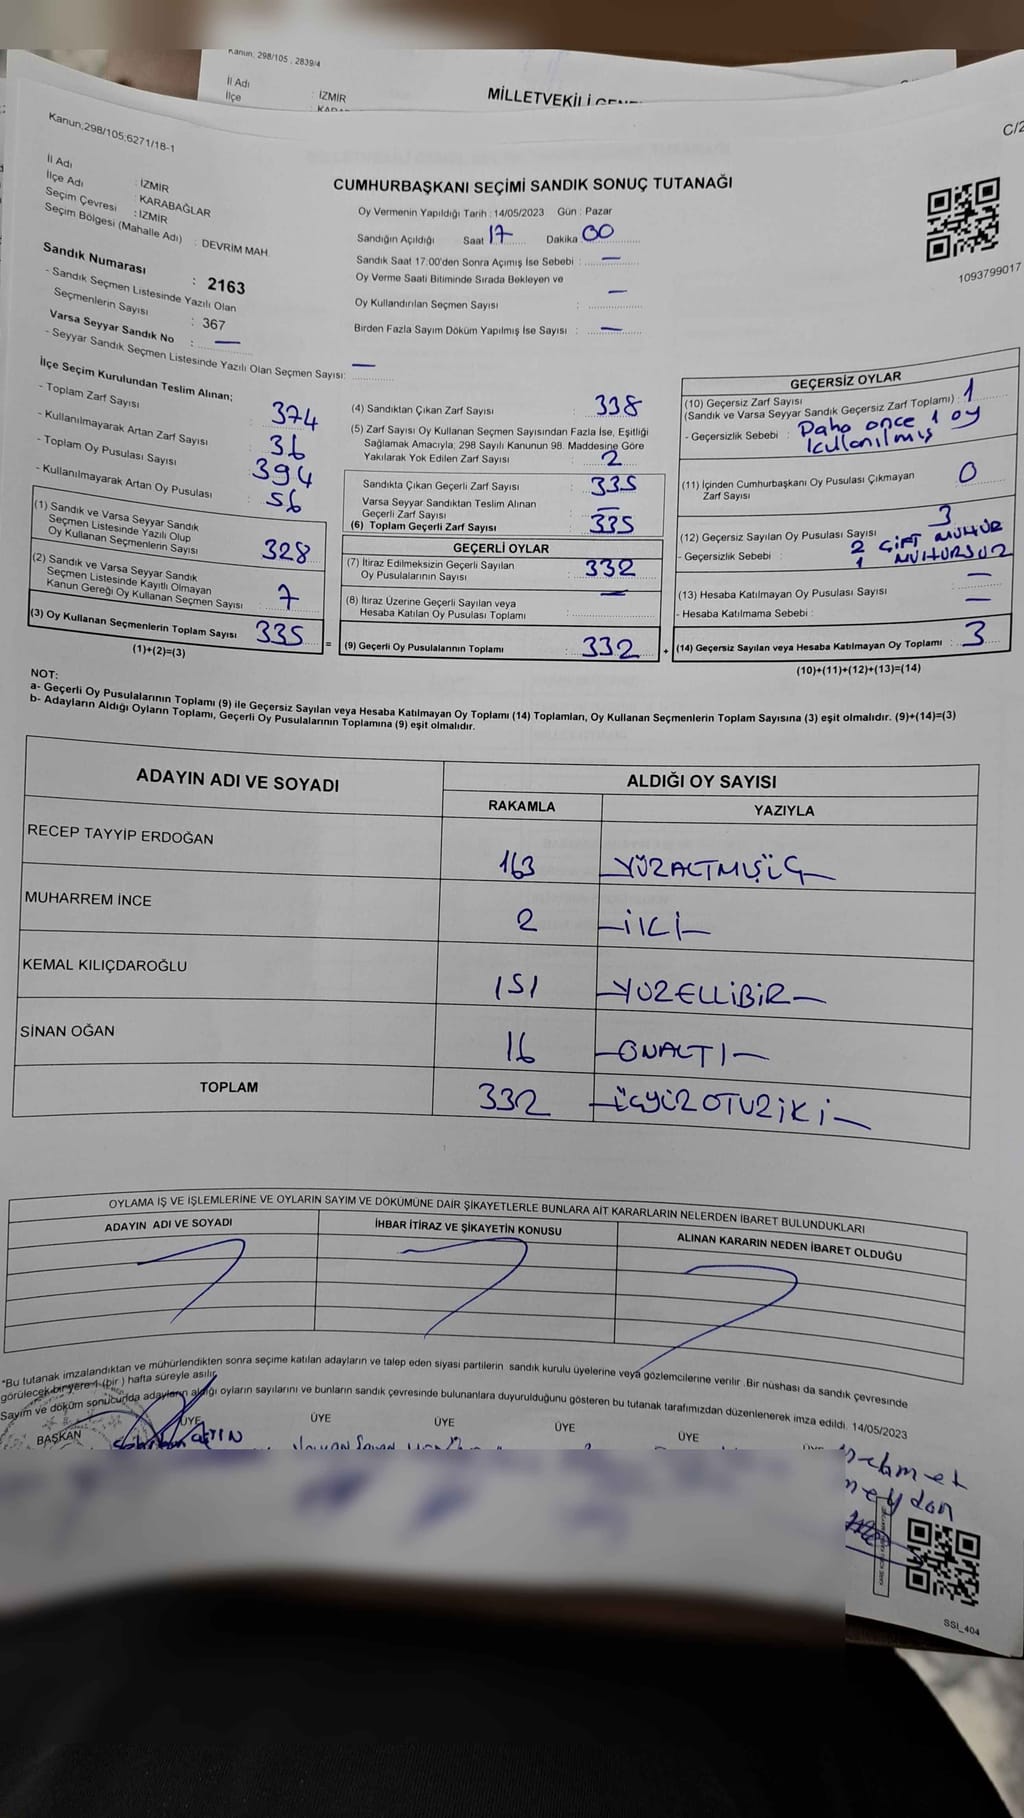 Kanun, 298/105 , 2839/4
İl Adı : İZMİR
İlçe
MİLLETVEKİLİ
Kanun,298/105,6271/18-1
C/2
İl Adı : İZMİR
İlçe Adı : KARABAĞLAR
Seçim Çevresi : İZMİR
Seçim Bölgesi (Mahalle Adı) : DEVRİM MAH.
CUMHURBAŞKANI SEÇİMİ SANDIK SONUÇ TUTANAĞI
Oy Vermenin Yapıldığı Tarih : 14/05/2023 Gün : Pazar
Sandığın Açıldığı Saat 17 Dakika 00
Sandık Saat 17:00'den Sonra Açımış İse Sebebi : —
Oy Verme Saati Bitiminde Sırada Bekleyen ve
Oy Kullandırılan Seçmen Sayısı : —
Birden Fazla Sayım Döküm Yapılmış İse Sayısı : —
1093799017
Sandık Numarası : 2163
- Sandık Seçmen Listesinde Yazılı Olan
Seçmenlerin Sayısı : 367
Varsa Seyyar Sandık No : —
- Seyyar Sandık Seçmen Listesinde Yazılı Olan Seçmen Sayısı: —
İlçe Seçim Kurulundan Teslim Alınan;
- Toplam Zarf Sayısı : 374
- Kullanılmayarak Artan Zarf Sayısı : 36
- Toplam Oy Pusulası Sayısı : 394
- Kullanılmayarak Artan Oy Pusulası : 56
(1) Sandık ve Varsa Seyyar Sandık
Seçmen Listesinde Yazılı Olup
Oy Kullanan Seçmenlerin Sayısı 328
(2) Sandık ve Varsa Seyyar Sandık
Seçmen Listesinde Kayıtlı Olmayan
Kanun Gereği Oy Kullanan Seçmen Sayısı 7
(3) Oy Kullanan Seçmenlerin Toplam Sayısı 335 =
(1)+(2)=(3)
(4) Sandıktan Çıkan Zarf Sayısı : 338
(5) Zarf Sayısı Oy Kullanan Seçmen Sayısından Fazla İse, Eşitliği
Sağlamak Amacıyla; 298 Sayılı Kanunun 98. Maddesine Göre
Yakılarak Yok Edilen Zarf Sayısı : 2
Sandıkta Çıkan Geçerli Zarf Sayısı : 335
Varsa Seyyar Sandıktan Teslim Alınan
Geçerli Zarf Sayısı : —
(6) Toplam Geçerli Zarf Sayısı : 335
GEÇERLİ OYLAR
(7) İtiraz Edilmeksizin Geçerli Sayılan
Oy Pusulalarının Sayısı : 332
(8) İtiraz Üzerine Geçerli Sayılan veya
Hesaba Katılan Oy Pusulası Toplamı : —
(9) Geçerli Oy Pusulalarının Toplamı : 332 +
GEÇERSİZ OYLAR
(10) Geçersiz Zarf Sayısı
(Sandık ve Varsa Seyyar Sandık Geçersiz Zarf Toplamı) : 1
- Geçersizlik Sebebi : Daha önce 1 oy
kullanılmış
(11) İçinden Cumhurbaşkanı Oy Pusulası Çıkmayan
Zarf Sayısı 0
(12) Geçersiz Sayılan Oy Pusulası Sayısı : 3
- Geçersizlik Sebebi : 2 ÇİFT MÜHÜR
1 MÜHÜRSÜZ
(13) Hesaba Katılmayan Oy Pusulası Sayısı : —
- Hesaba Katılmama Sebebi : —
(14) Geçersiz Sayılan veya Hesaba Katılmayan Oy Toplamı : 3
(10)+(11)+(12)+(13)=(14)
NOT:
a- Geçerli Oy Pusulalarının Toplamı (9) ile Geçersiz Sayılan veya Hesaba Katılmayan Oy Toplamı (14) Toplamları, Oy Kullanan Seçmenlerin Toplam Sayısına (3) eşit olmalıdır. (9)+(14)=(3)
b- Adayların Aldığı Oyların Toplamı, Geçerli Oy Pusulalarının Toplamına (9) eşit olmalıdır.
ADAYIN ADI VE SOYADI
ALDIĞI OY SAYISI
RAKAMLA YAZIYLA
RECEP TAYYİP ERDOĞAN 163 YÜZALTMIŞÜÇ
MUHARREM İNCE 2 İKİ
KEMAL KILIÇDAROĞLU 151 YÜZELLİBİR
SİNAN OĞAN 16 ONALTI
TOPLAM 332 ÜÇYÜZOTUZİKİ
OYLAMA İŞ VE İŞLEMLERİNE VE OYLARIN SAYIM VE DÖKÜMÜNE DAİR ŞİKAYETLERLE BUNLARA AİT KARARLARIN NELERDEN İBARET BULUNDUKLARI
ADAYIN ADI VE SOYADI İHBAR İTİRAZ VE ŞİKAYETİN KONUSU ALINAN KARARIN NEDEN İBARET OLDUĞU
*Bu tutanak imzalandıktan ve mühürlendikten sonra seçime katılan adayların ve talep eden siyasi partilerin sandık kurulu üyelerine veya gözlemcilerine verilir .Bir nüshası da sandık çevresinde
görülecek bir yere 1 (bir ) hafta süreyle asılır.
Sayım ve döküm sonucunda adayların aldığı oyların sayılarını ve bunların sandık çevresinde bulunanlara duyurulduğunu gösteren bu tutanak tarafımızdan düzenlenerek imza edildi. 14/05/2023
BAŞKAN ÜYE ÜYE ÜYE ÜYE ÜYE
Mehmet
meydan
SSİ_404